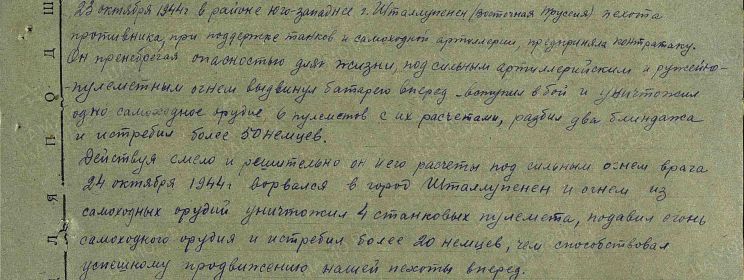 23 октября 1944г. в районе юго-западнее г. Шталлупенен (Восточная Пруссия) пехота
противника, при поддержке танков и самоходной артиллерии, предприняла контратаку.
Он пренебрегая опасностью для жизни, под сильным артиллерийским и ружейно-
-пулеметным огнем выдвинул батарею вперед вступил в бой и уничтожил
одно самоходное орудие 6 пулеметов с их расчетами, разбил два блиндажа
и истребил более 50 немцев.
Действуя смело и решительно он и его расчеты под сильным огнем врага
24 октября 1944г ворвался в город Шталлупенен и огнем из
самоходных орудий уничтожил 4 станковых пулемета, подавил огонь
самоходного орудия и истребил более 20 немцев, чем способствовал
успешному продвижению нашей пехоты вперед.